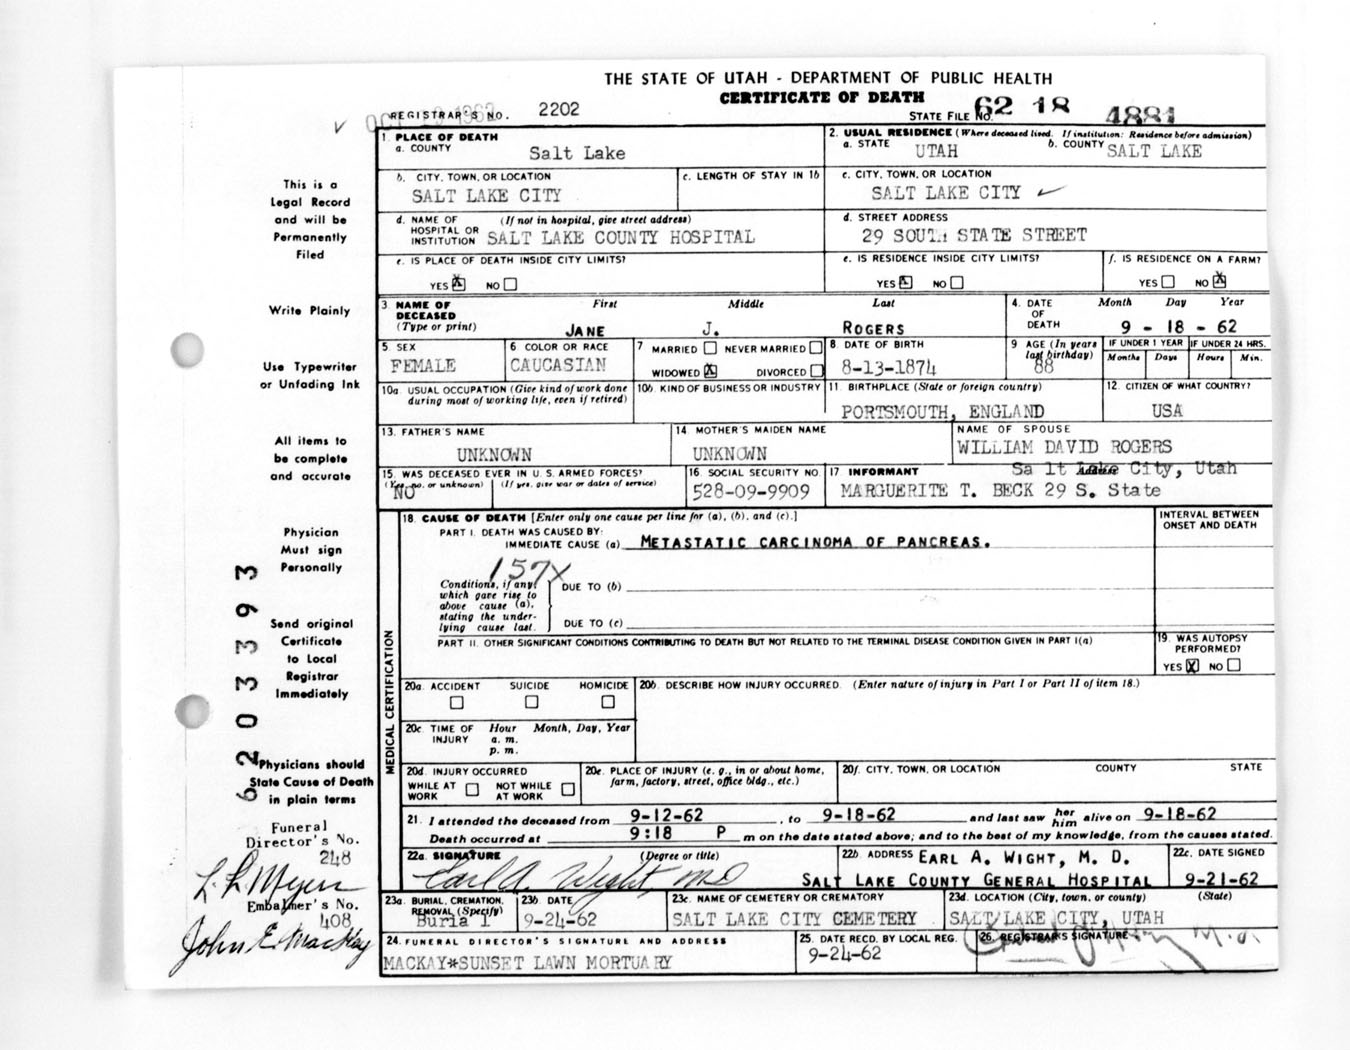 THE STATE OF UTAH - DEPARTMENT OF PUBLIC HEALTH
CERTIFICATE OF DEATH
REGISTRAR'S NO. 2202
STATE FILE NO. 62 18 4881
1. PLACE OF DEATH
a. COUNTY Salt Lake
2. USUAL RESIDENCE (Where deceased lived. If institution: Residence before admission)
a. STATE UTAH b. COUNTY SALT LAKE
b. CITY, TOWN, OR LOCATION
SALT LAKE CITY
c. LENGTH OF STAY IN 1b
c. CITY, TOWN, OR LOCATION
SALT LAKE CITY
d. NAME OF HOSPITAL OR INSTITUTION (If not in hospital, give street address)
SALT LAKE COUNTY HOSPITAL
d. STREET ADDRESS
29 SOUTH STATE STREET
e. IS PLACE OF DEATH INSIDE CITY LIMITS?
YES X NO
e. IS RESIDENCE INSIDE CITY LIMITS?
YES X NO
f. IS RESIDENCE ON A FARM?
YES NO X
3. NAME OF DECEASED (Type or print)
First Middle Last
JANE J. ROGERS
4. DATE OF DEATH
Month Day Year
9 - 18 - 62
5. SEX
FEMALE
6 COLOR OR RACE
CAUCASIAN
7 MARRIED NEVER MARRIED
WIDOWED X DIVORCED
8 DATE OF BIRTH
8-13-1874
9 AGE (In years last birthday)
88
IF UNDER 1 YEAR
Months Days
IF UNDER 24 HRS.
Hours Min.
10a. USUAL OCCUPATION (Give kind of work done during most of working life, even if retired)
10b. KIND OF BUSINESS OR INDUSTRY
11. BIRTHPLACE (State or foreign country)
PORTSMOUTH, ENGLAND
12. CITIZEN OF WHAT COUNTRY?
USA
13. FATHER'S NAME
UNKNOWN
14. MOTHER'S MAIDEN NAME
UNKNOWN
NAME OF SPOUSE
WILLIAM DAVID ROGERS
15. WAS DECEASED EVER IN U. S. ARMED FORCES?
(Yes, no, or unknown) (If yes, give war or dates of service)
NO
16. SOCIAL SECURITY NO.
528-09-9909
17 INFORMANT Address
Sa lt Lake City, Utah
MARGUERITE T. BECK 29 S. State
18. CAUSE OF DEATH [Enter only one cause per line for (a), (b), and (c).]
INTERVAL BETWEEN ONSET AND DEATH
PART I. DEATH WAS CAUSED BY:
IMMEDIATE CAUSE (a) METASTATIC CARCINOMA OF PANCREAS.
157X
Conditions, if any, which gave rise to above cause (a), stating the underlying cause last.
DUE TO (b)
DUE TO (c)
PART II. OTHER SIGNIFICANT CONDITIONS CONTRIBUTING TO DEATH BUT NOT RELATED TO THE TERMINAL DISEASE CONDITION GIVEN IN PART I(a)
19. WAS AUTOPSY PERFORMED?
YES X NO
MEDICAL CERTIFICATION
20a. ACCIDENT SUICIDE HOMICIDE
20b. DESCRIBE HOW INJURY OCCURRED. (Enter nature of injury in Part I or Part II of item 18.)
20c. TIME OF INJURY
Hour Month, Day, Year
a. m.
p. m.
20d. INJURY OCCURRED
WHILE AT WORK NOT WHILE AT WORK
20e. PLACE OF INJURY (e. g., in or about home, farm, factory, street, office bldg., etc.)
20f. CITY, TOWN, OR LOCATION COUNTY STATE
21. I attended the deceased from 9-12-62, to 9-18-62 and last saw her him alive on 9-18-62
Death occurred at 9:18 P m on the date stated above; and to the best of my knowledge, from the causes stated.
22a. SIGNATURE (Degree or title)
Earl A. Wight, MD
22b. ADDRESS EARL A. WIGHT, M. D.
SALT LAKE COUNTY GENERAL HOSPITAL
22c. DATE SIGNED
9-21-62
23a. BURIAL, CREMATION, REMOVAL (Specify)
Buria l
23b. DATE
9-24-62
23c. NAME OF CEMETERY OR CREMATORY
SALT LAKE CITY CEMETERY
23d. LOCATION (City, town, or county) (State)
SALT LAKE CITY, UTAH
24. FUNERAL DIRECTOR'S SIGNATURE AND ADDRESS
MACKAY*SUNSET LAWN MORTUARY
25. DATE RECD. BY LOCAL REG.
9-24-62
26. REGISTRAR'S SIGNATURE
This is a
Legal Record
and will be
Permanently
Filed
Write Plainly
Use Typewriter
or Unfading Ink
All items to
be complete
and accurate
Physician
Must sign
Personally
Send original
Certificate
to Local
Registrar
Immediately
Physicians should
State Cause of Death
in plain terms
6 2 0 3 3 9 3
Funeral
Director's No.
248
L. L. Myers
Embalmer's No.
408
John E. MacKay